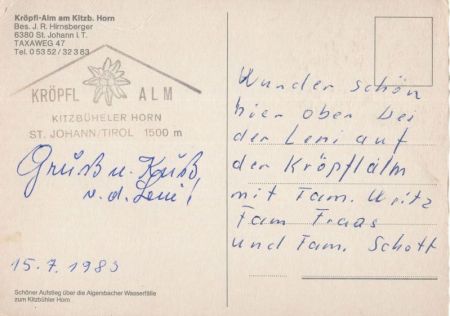 Kröpfl-Alm am Kitzb. Horn
Bes. J. R. Hirnsberger
6380 St. Johann i. T.
TAXAWEG 47
Tel. 0 53 52 / 32 3 83
KRÖPFL ALM
KITZBÜHELER HORN
ST. JOHANN/TIROL 1500 m
Gruß u. Kuß
v. d. Leni!
15.7.1983
Schöner Aufstieg über die Aigersbacher Wasserfälle
zum Kitzbühler Horn
Wunder schön
hier ober bei
der Leni auf
der Kröpflalm
mit Fam.
Fam Fraas
und Fam. Schott